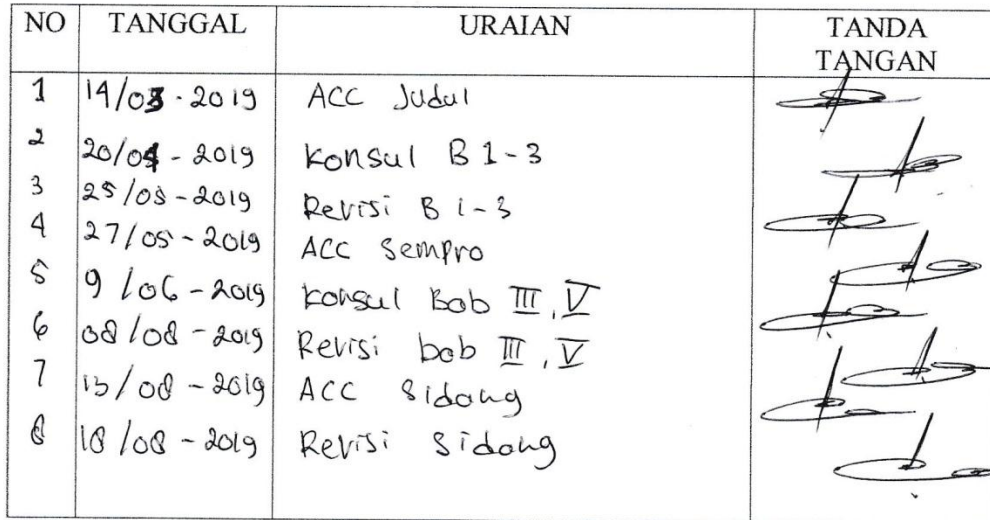 NO TANGGAL URAIAN TANDA TANGAN
1 14/03-2019 ACC Judul
2 20/04-2019 Konsul B 1-3
3 25/05-2019 Revisi B 1-3
4 27/05-2019 ACC Sempro
5 9/06-2019 Konsul Bab III, V
6 08/08-2019 Revisi bab III, V
7 13/08-2019 ACC Sidang
8 18/08-2019 Revisi Sidang